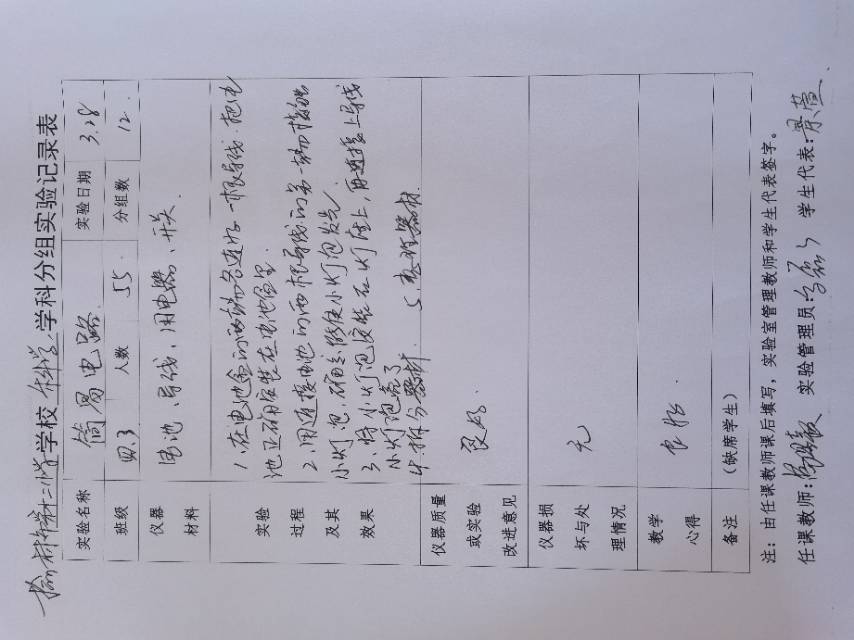 学校 科学 学科分组实验记录表
实验名称 简易电路 实验日期 3.28
班级 四.3 人数 55. 分组数 12.
仪器材料 电池、导线、用电器、开关.
实验过程及其效果
1、在电池盒的两端各连好一根导线.把电
池正确安装在电池盒里.
2、用连接电池的两根导线的另一端接触
小灯泡.确定能使小灯泡发光.
3、将小灯泡安装在灯座上,再连接上导线
小灯泡亮了
4.拆分器材 5、整理器材
仪器质量或实验改进意见 良好.
仪器损坏与处理情况 无
教学心得 良好.
备注 (缺席学生)
注:由任课教师课后填写,实验室管理教师和学生代表签字。
任课教师: 实验管理员: 学生代表: